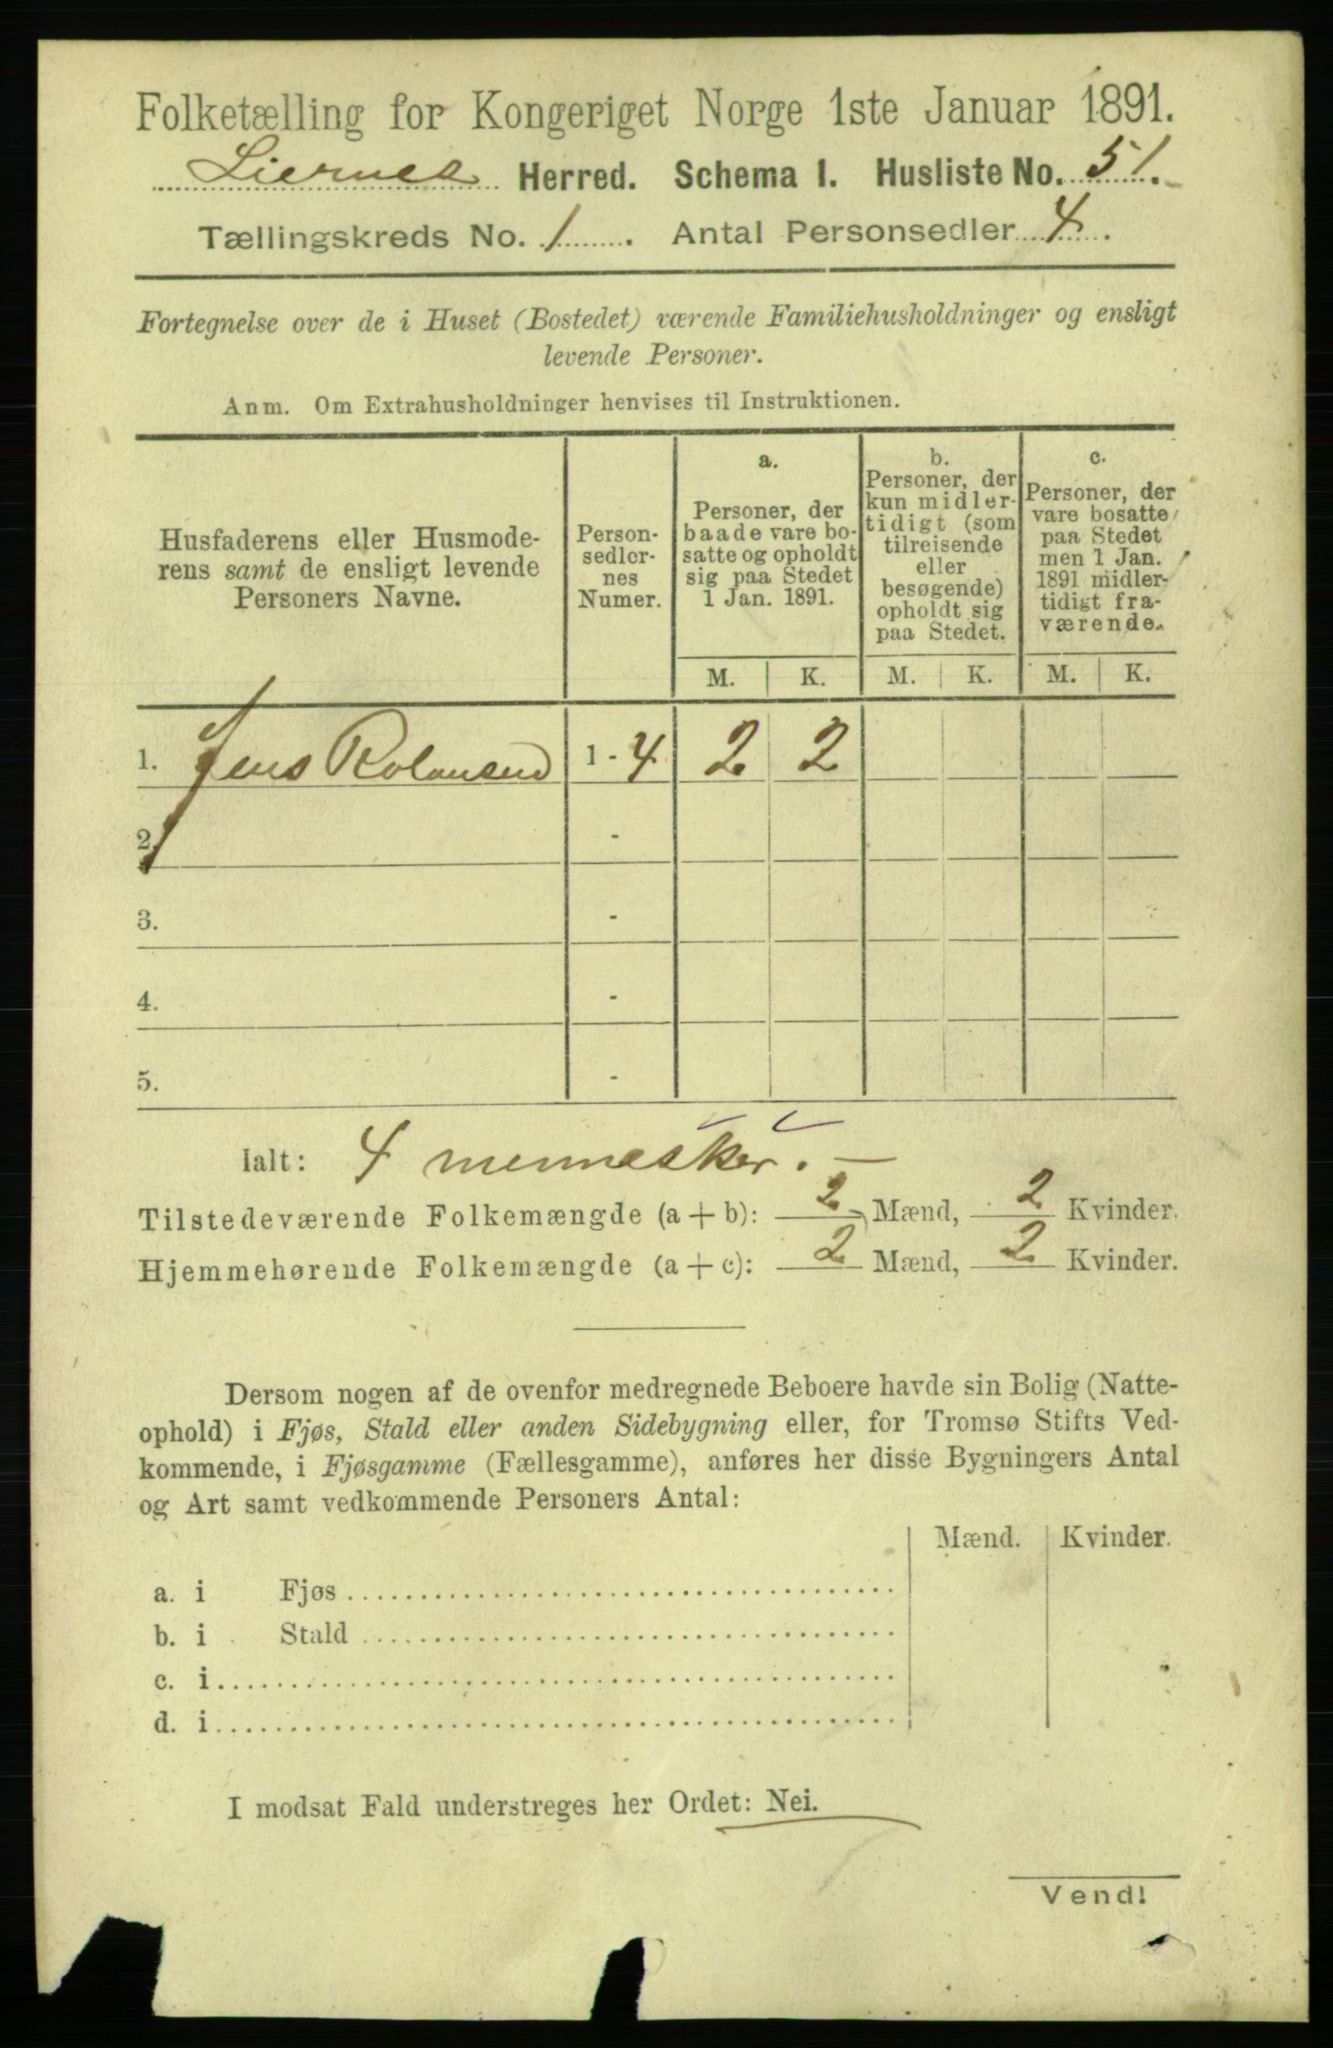 Folketælling for Kongeriget Norge 1ste Januar 1891.
Liernes Herred. Schema 1. Husliste No. 51.
Tællingskreds No. 1. Antal Personsedler 4.
Fortegnelse over de i Huset (Bostedet) værende Familiehusholdninger og ensligt
levende Personer.
Anm. Om Extrahusholdninger henvises til Instruktionen.
Husfaderens eller Husmode-
rens samt de ensligt levende
Personers Navne.
Person-
sedler-
nes
Numer.
a.
Personer, der
baade vare bo-
satte og opholdt
sig paa Stedet
1 Jan. 1891.
b.
Personer, der
kun midler-
tidigt (som
tilreisende
eller
besøgende)
opholdt sig
paa Stedet.
c.
Personer, der
vare bosatte
paa Stedet
men 1 Jan.
1891 midler-
tidigt fra-
værende.
M. K. M. K. M. K.
1. Jens Rolansend 1 - 4 2 2
2. -
3. -
4. -
5. -
Ialt: 4 mennesker. —
Tilstedeværende Folkemængde (a + b): 2 Mænd, 2 Kvinder.
Hjemmehørende Folkemængde (a + c): 2 Mænd, 2 Kvinder.
Dersom nogen af de ovenfor medregnede Beboere havde sin Bolig (Natte-
ophold) i Fjøs, Stald eller anden Sidebygning eller, for Tromsø Stifts Ved-
kommende, i Fjøsgamme (Fællesgamme), anføres her disse Bygningers Antal
og Art samt vedkommende Personers Antal:
Mænd. Kvinder.
a. i Fjøs
b. i Stald
c. i
d. i
I modsat Fald understreges her Ordet: Nei.
Vend!